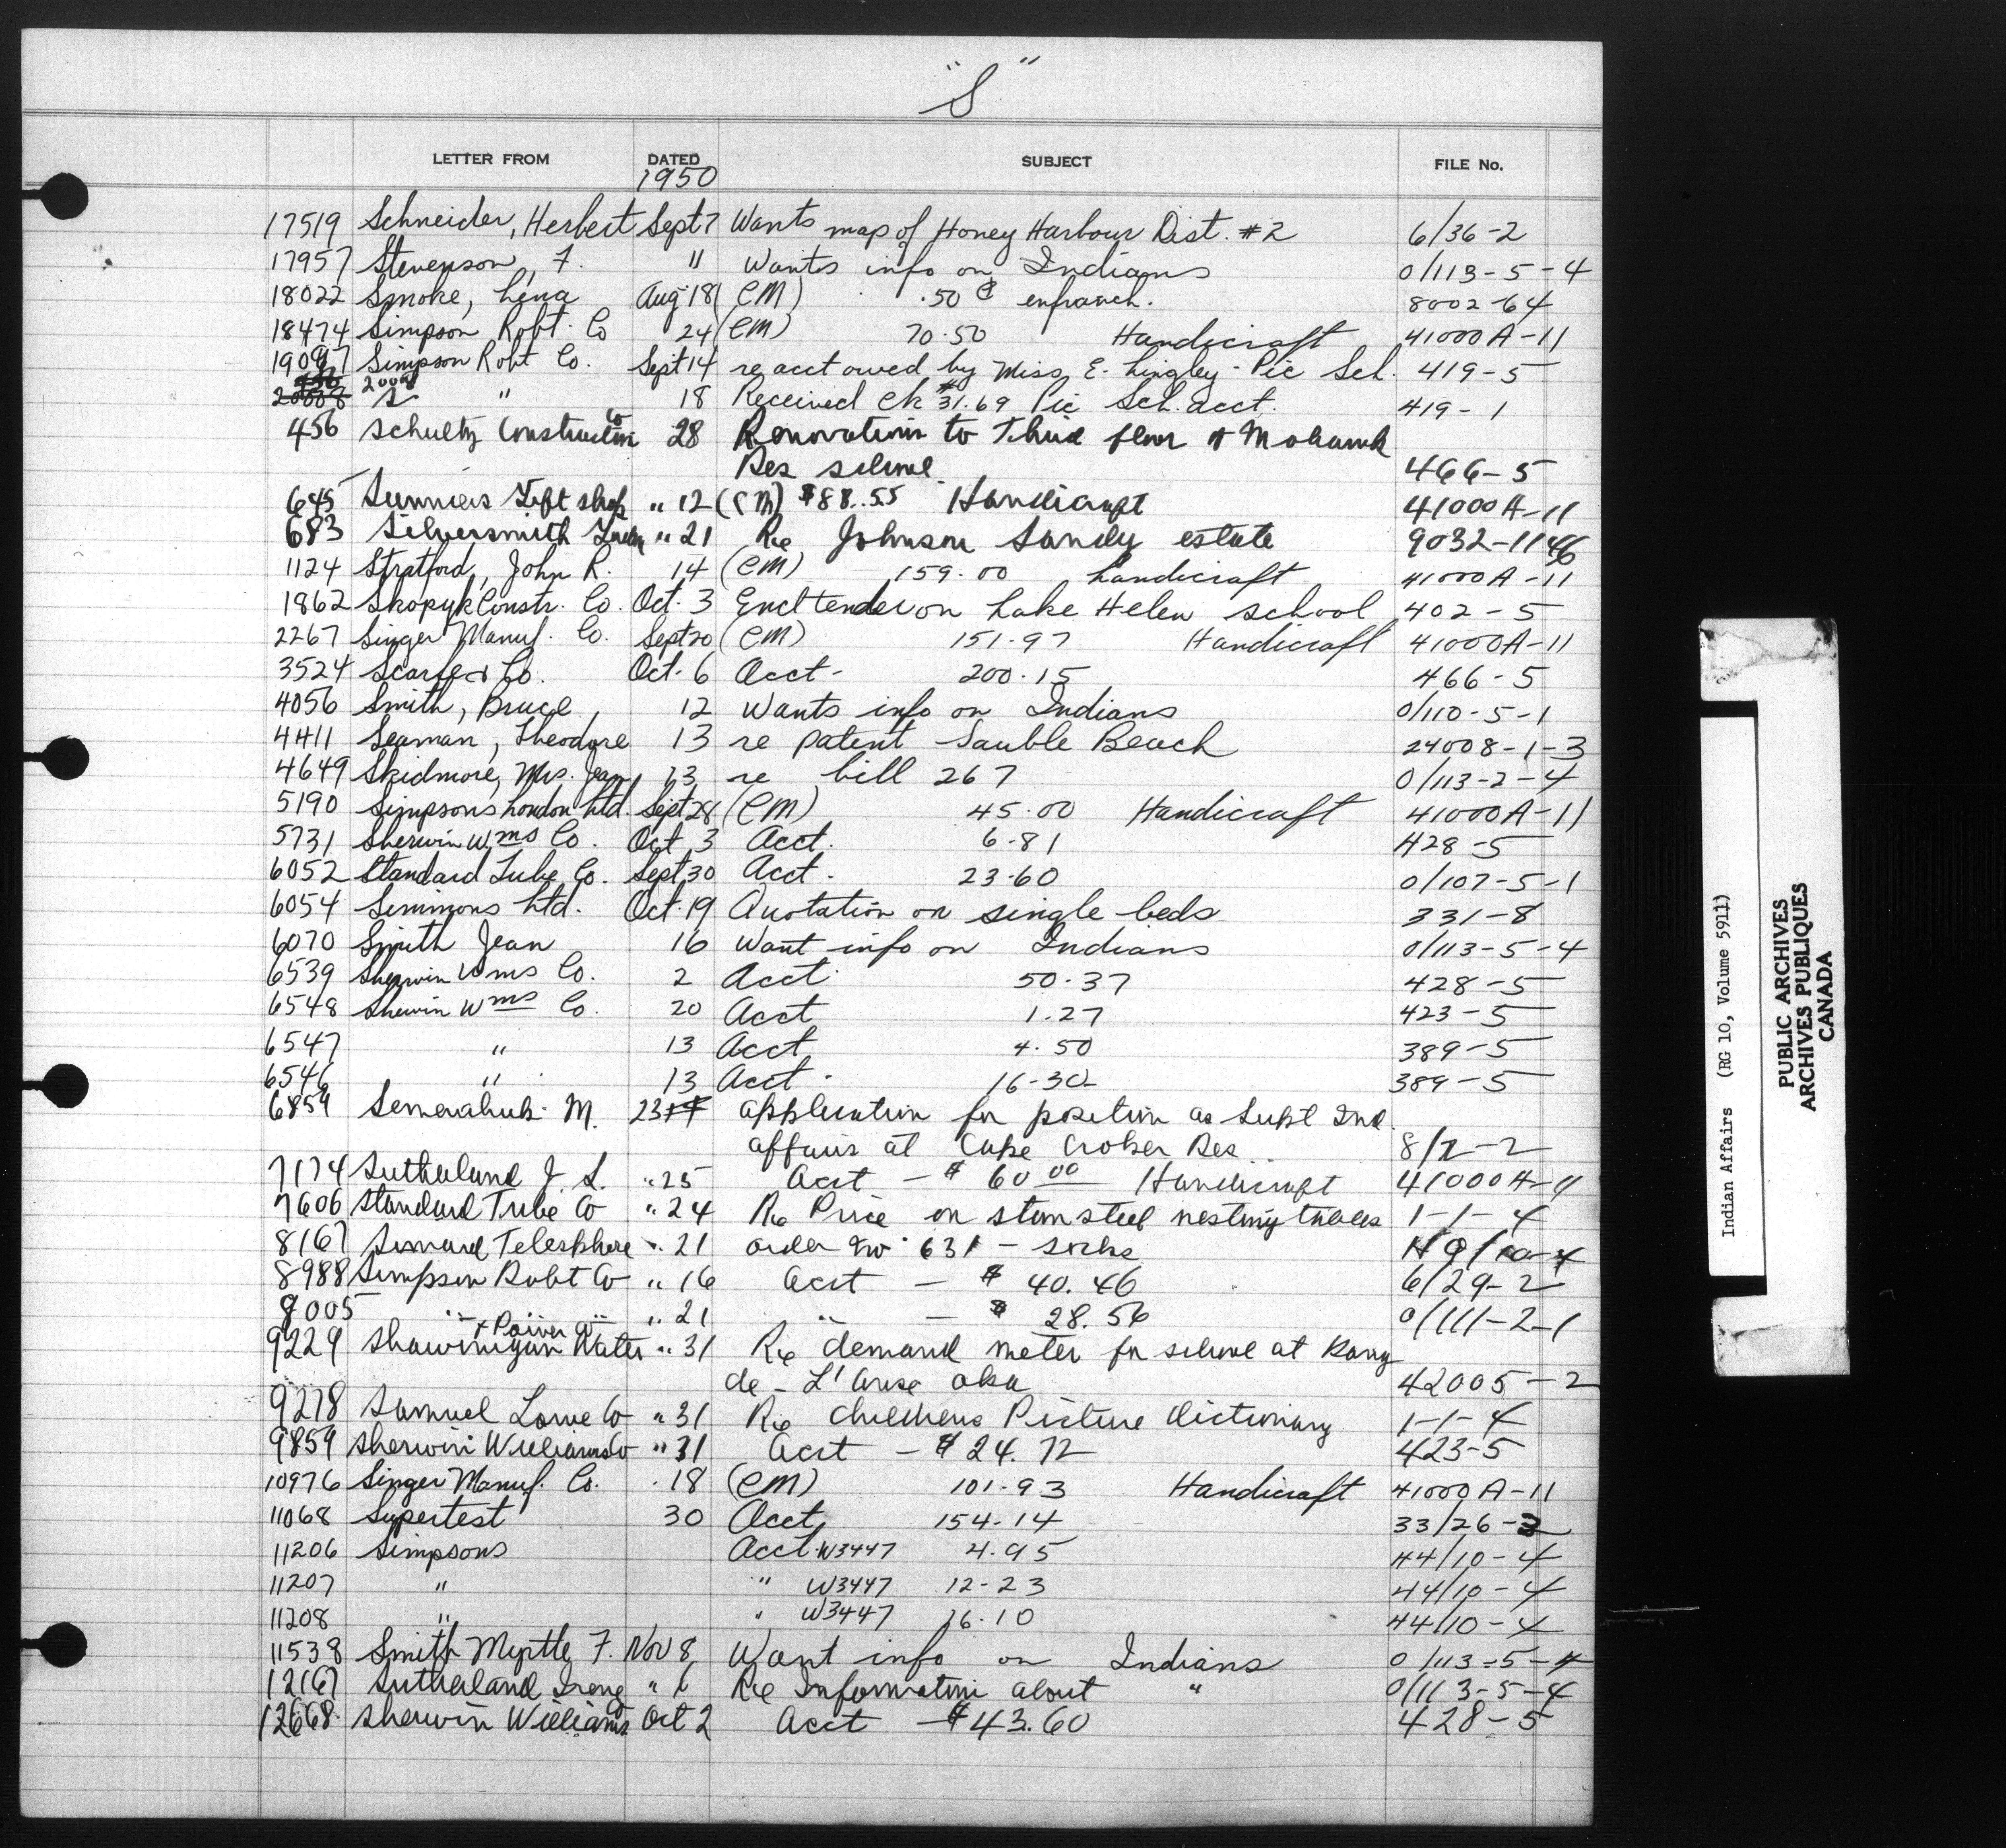 "S"
LETTER FROM DATED SUBJECT FILE No.
1950
17519 Schneider, Herbert Sept 7 Wants map of Honey Harbour Dist. #2 6/36-2
17957 Stevenson, F. " Wants info on Indians 0/113-5-4
18022 Smoke, Lena Aug 18 (CM) .50 ¢ enfranch. 8002-64
18474 Simpson Robt. Co 24 (CM) 70.50 Handicraft 41000A-11
19097 Simpson Robt Co. Sept 14 re acct owed by Miss E. Lingley - Pic Sch. 419-5
20008 " 18 Received ck #31.69 Pic Sch. acct. 419-1
456 Schultz Construction Co 28 Renovations to Third floor of Mohawk
Res school 466-5
645 Gift shop " 12 (CM) $88.55 Handicraft 41000A-11
683 Silversmith " 21 Re Johnson Sandy estate 9032-1146
1124 Stratford, John R. 14 (CM) 159.00 handicraft 41000A-11
1862 Skopyk Constr. Co. Oct. 3 Encl tender on Lake Helen school 402-5
2267 Singer Manuf. Co. Sept 20 (CM) 151.97 Handicraft 41000A-11
3524 Scarfe & Co. Oct. 6 Acct - 200.15 466-5
4056 Smith, Bruce, 12 Wants info on Indians 0/110-5-1
4411 Seaman, Theodore 13 re patent Sauble Beach 24008-1-3
4649 Skidmore, Mrs. Jean 13 re bill 267 0/113-2-4
5190 Simpsons London Ltd. Sept 28 (CM) 45.00 Handicraft 41000A-11
5731 Sherwin Wms Co. Oct 3 Acct. 6.81 428-5
6052 Standard Tube Co. Sept 30 Acct. 23.60 0/107-5-1
6054 Simmons Ltd. Oct. 19 Quotation on single beds 331-8
6070 Smith Jean 16 Want info on Indians 0/113-5-4
6539 Sherwin Wms Co. 2 Acct 50.37 428-5
6548 Sherwin Wms Co. 20 Acct 1.27 423-5
6547 " 13 Acct 4.50 389-5
6546 " 13 Acct. 16.30 389-5
6859 M. 23 application for position as Supt Ind.
affairs at Cape Croker Res. 8/2-2
7174 Sutherland J. S. " 25 Acct - $ 60 00 Handicraft 41000A-11
7606 Standard Tube Co " 24 Re Price on steel nesting tables 1-1-4
8167 Simard Telesphore " 21 order Ew 631 - socks
8988 Simpson Robt Co " 16 Acct - $ 40.46 6/29-2
9005 " " " 21 " - $ 28.56 0/111-2-1
9229 Shawinigan Water & Power Co " 31 Re demand meter for school at
de - L'Anse 42005-2
9278 Samuel Lowe Co " 31 Re Childrens Picture Dictionary 1-1-4
9859 Sherwin Williams Co " 31 Acct - $24.72 423-5
10976 Singer Manuf. Co. 18 (CM) 101.93 Handicraft 41000A-11
11068 Supertest 30 Acct 154.14 33/26-2
11206 Simpsons Acct. W3447 4.95 44/10-4
11207 " " W3447 12-23 44/10-4
11208 " " W3447 16.10 44/10-4
11538 Smith Myrtle F. Nov 8 Want info on Indians 0/113-5-4
12167 Sutherland Irene " 6 Re Information about " 0/113-5-4
12668 Sherwin Williams Oct 2 Acct - $43.60 428-5
Indian Affairs (RG 10, Volume 5911)
PUBLIC ARCHIVES
ARCHIVES PUBLIQUES
CANADA